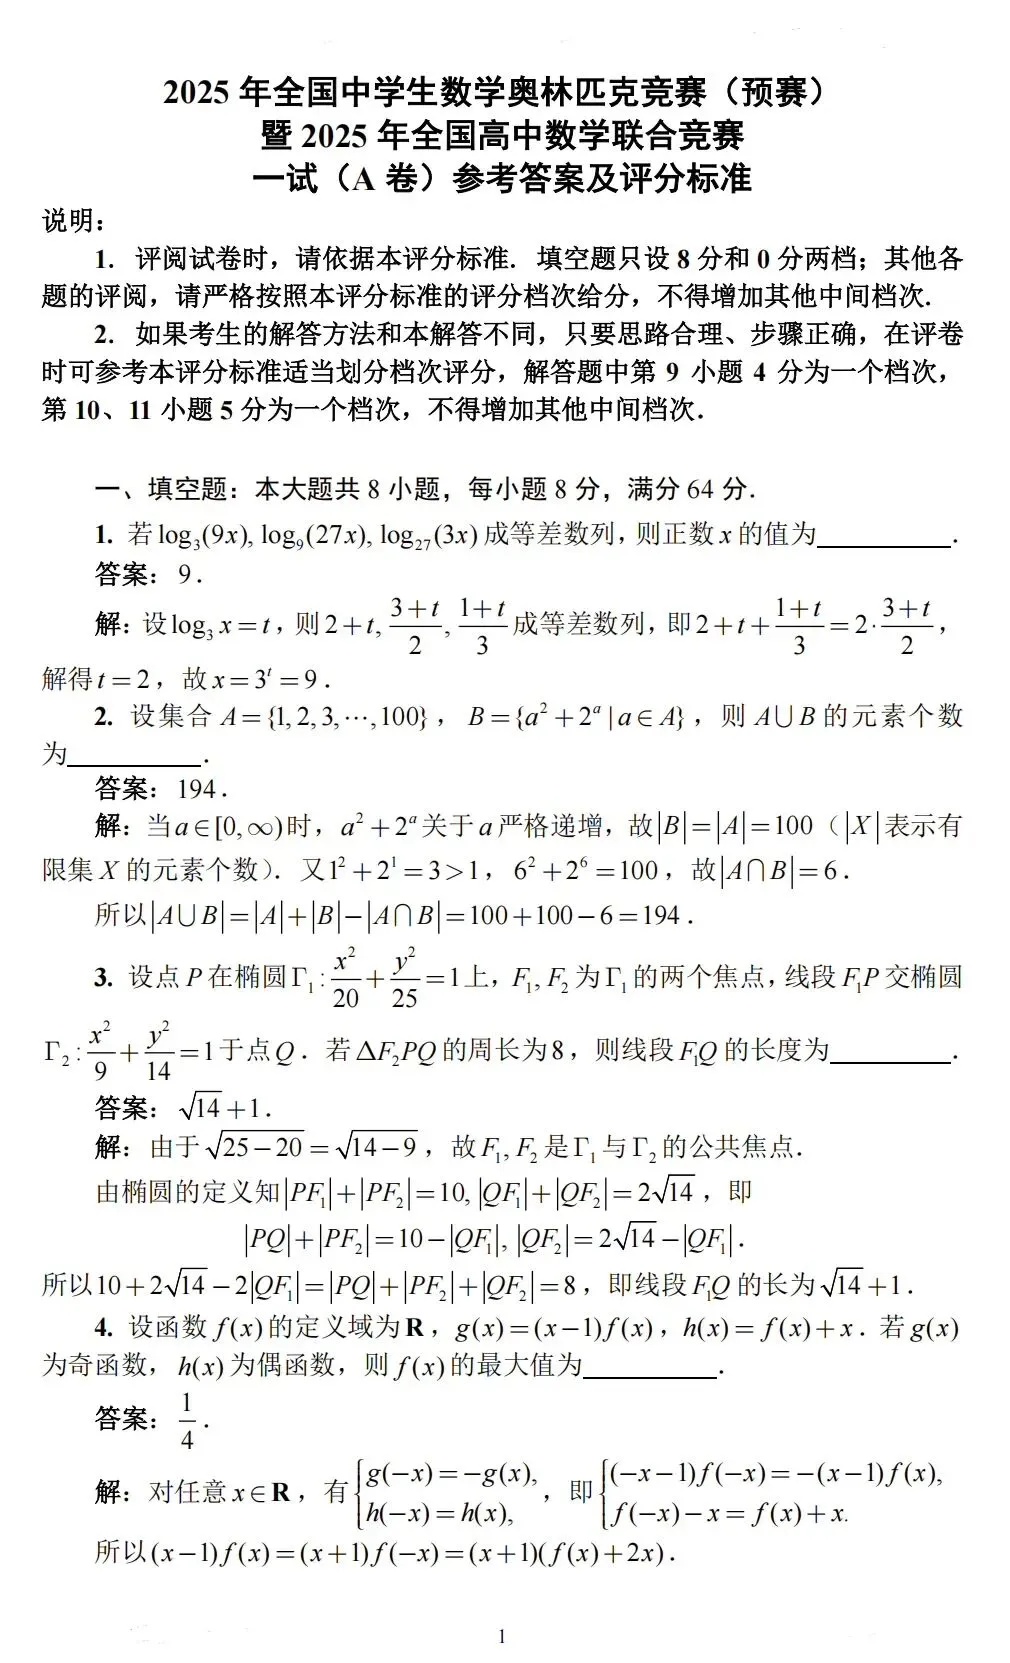 2025 年全国中学生数学奥林匹克竞赛（预赛）
暨 2025 年全国高中数学联合竞赛
一试（A 卷）参考答案及评分标准
说明：
1. 评阅试卷时，请依据本评分标准. 填空题只设 8 分和 0 分两档；其他各
题的评阅，请严格按照本评分标准的评分档次给分，不得增加其他中间档次.
2. 如果考生的解答方法和本解答不同，只要思路合理、步骤正确，在评卷
时可参考本评分标准适当划分档次评分，解答题中第 9 小题 4 分为一个档次，
第 10、11 小题 5 分为一个档次，不得增加其他中间档次.
一、填空题：本大题共 8 小题，每小题 8 分，满分 64 分.
1. 若 log₃(9x), log₉(27x), log₂₇(3x) 成等差数列，则正数 x 的值为__________.
答案：9.
解：设 log₃ x = t，则 2+t, (3+t)/2, (1+t)/3 成等差数列，即 2+t+(1+t)/3 = 2·(3+t)/2，
解得 t = 2，故 x = 3ᵗ = 9.
2. 设集合 A = {1, 2, 3, ⋯, 100}，B = {a² + 2ᵃ | a ∈ A}，则 A∪B 的元素个数
为__________.
答案：194.
解：当 a ∈ [0, ∞) 时，a² + 2ᵃ 关于 a 严格递增，故 |B| = |A| = 100（|X| 表示有
限集 X 的元素个数）. 又 1² + 2¹ = 3 > 1，6² + 2⁶ = 100，故 |A∩B| = 6.
所以 |A∪B| = |A| + |B| − |A∩B| = 100 + 100 − 6 = 194.
3. 设点 P 在椭圆 Γ₁ : x²/20 + y²/25 = 1 上，F₁, F₂ 为 Γ₁ 的两个焦点，线段 F₁P 交椭圆
Γ₂ : x²/9 + y²/14 = 1 于点 Q. 若 ΔF₂PQ 的周长为 8，则线段 F₁Q 的长度为__________.
答案：√14 + 1.
解：由于 √(25 − 20) = √(14 − 9)，故 F₁, F₂ 是 Γ₁ 与 Γ₂ 的公共焦点.
由椭圆的定义知 |PF₁| + |PF₂| = 10, |QF₁| + |QF₂| = 2√14，即
|PQ| + |PF₂| = 10 − |QF₁|, |QF₂| = 2√14 − |QF₁|.
所以 10 + 2√14 − 2|QF₁| = |PQ| + |PF₂| + |QF₂| = 8，即线段 F₁Q 的长为 √14 + 1.
4. 设函数 f(x) 的定义域为 R，g(x) = (x − 1)f(x)，h(x) = f(x) + x. 若 g(x)
为奇函数，h(x) 为偶函数，则 f(x) 的最大值为__________.
答案：1/4.
解：对任意 x ∈ R，有 { g(−x) = −g(x), h(−x) = h(x), ，即 { (−x − 1)f(−x) = −(x − 1)f(x), f(−x) − x = f(x) + x.
所以 (x − 1)f(x) = (x + 1)f(−x) = (x + 1)(f(x) + 2x).
1